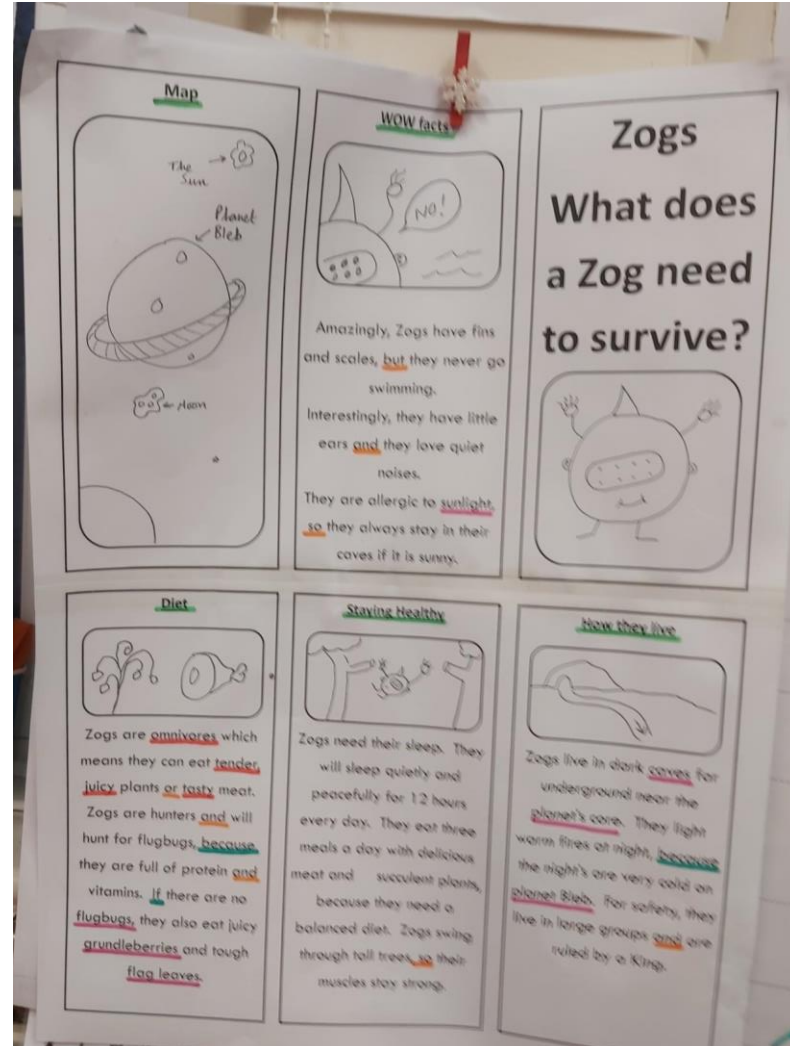 Map
The
Sun
Planet
Bleb
Moon
WOW facts
NO!
Amazingly, Zogs have fins
and scales, but they never go
swimming.
Interestingly, they have little
ears and they love quiet
noises.
They are allergic to sunlight,
so they always stay in their
caves if it is sunny.
Zogs
What does
a Zog need
to survive?
Diet
Zogs are omnivores which
means they can eat tender,
juicy plants or tasty meat.
Zogs are hunters and will
hunt for flugbugs, because
they are full of protein and
vitamins. If there are no
flugbugs, they also eat juicy
grundleberries and tough
flag leaves.
Staying Healthy
Zogs need their sleep. They
will sleep quietly and
peacefully for 12 hours
every day. They eat three
meals a day with delicious
meat and succulent plants,
because they need a
balanced diet. Zogs swing
through tall trees, so their
muscles stay strong.
How they live
Zogs live in dark caves far
underground near the
planet's core. They light
warm fires at night, because
the night's are very cold on
planet Bleb. For safety, they
live in large groups and are
ruled by a King.